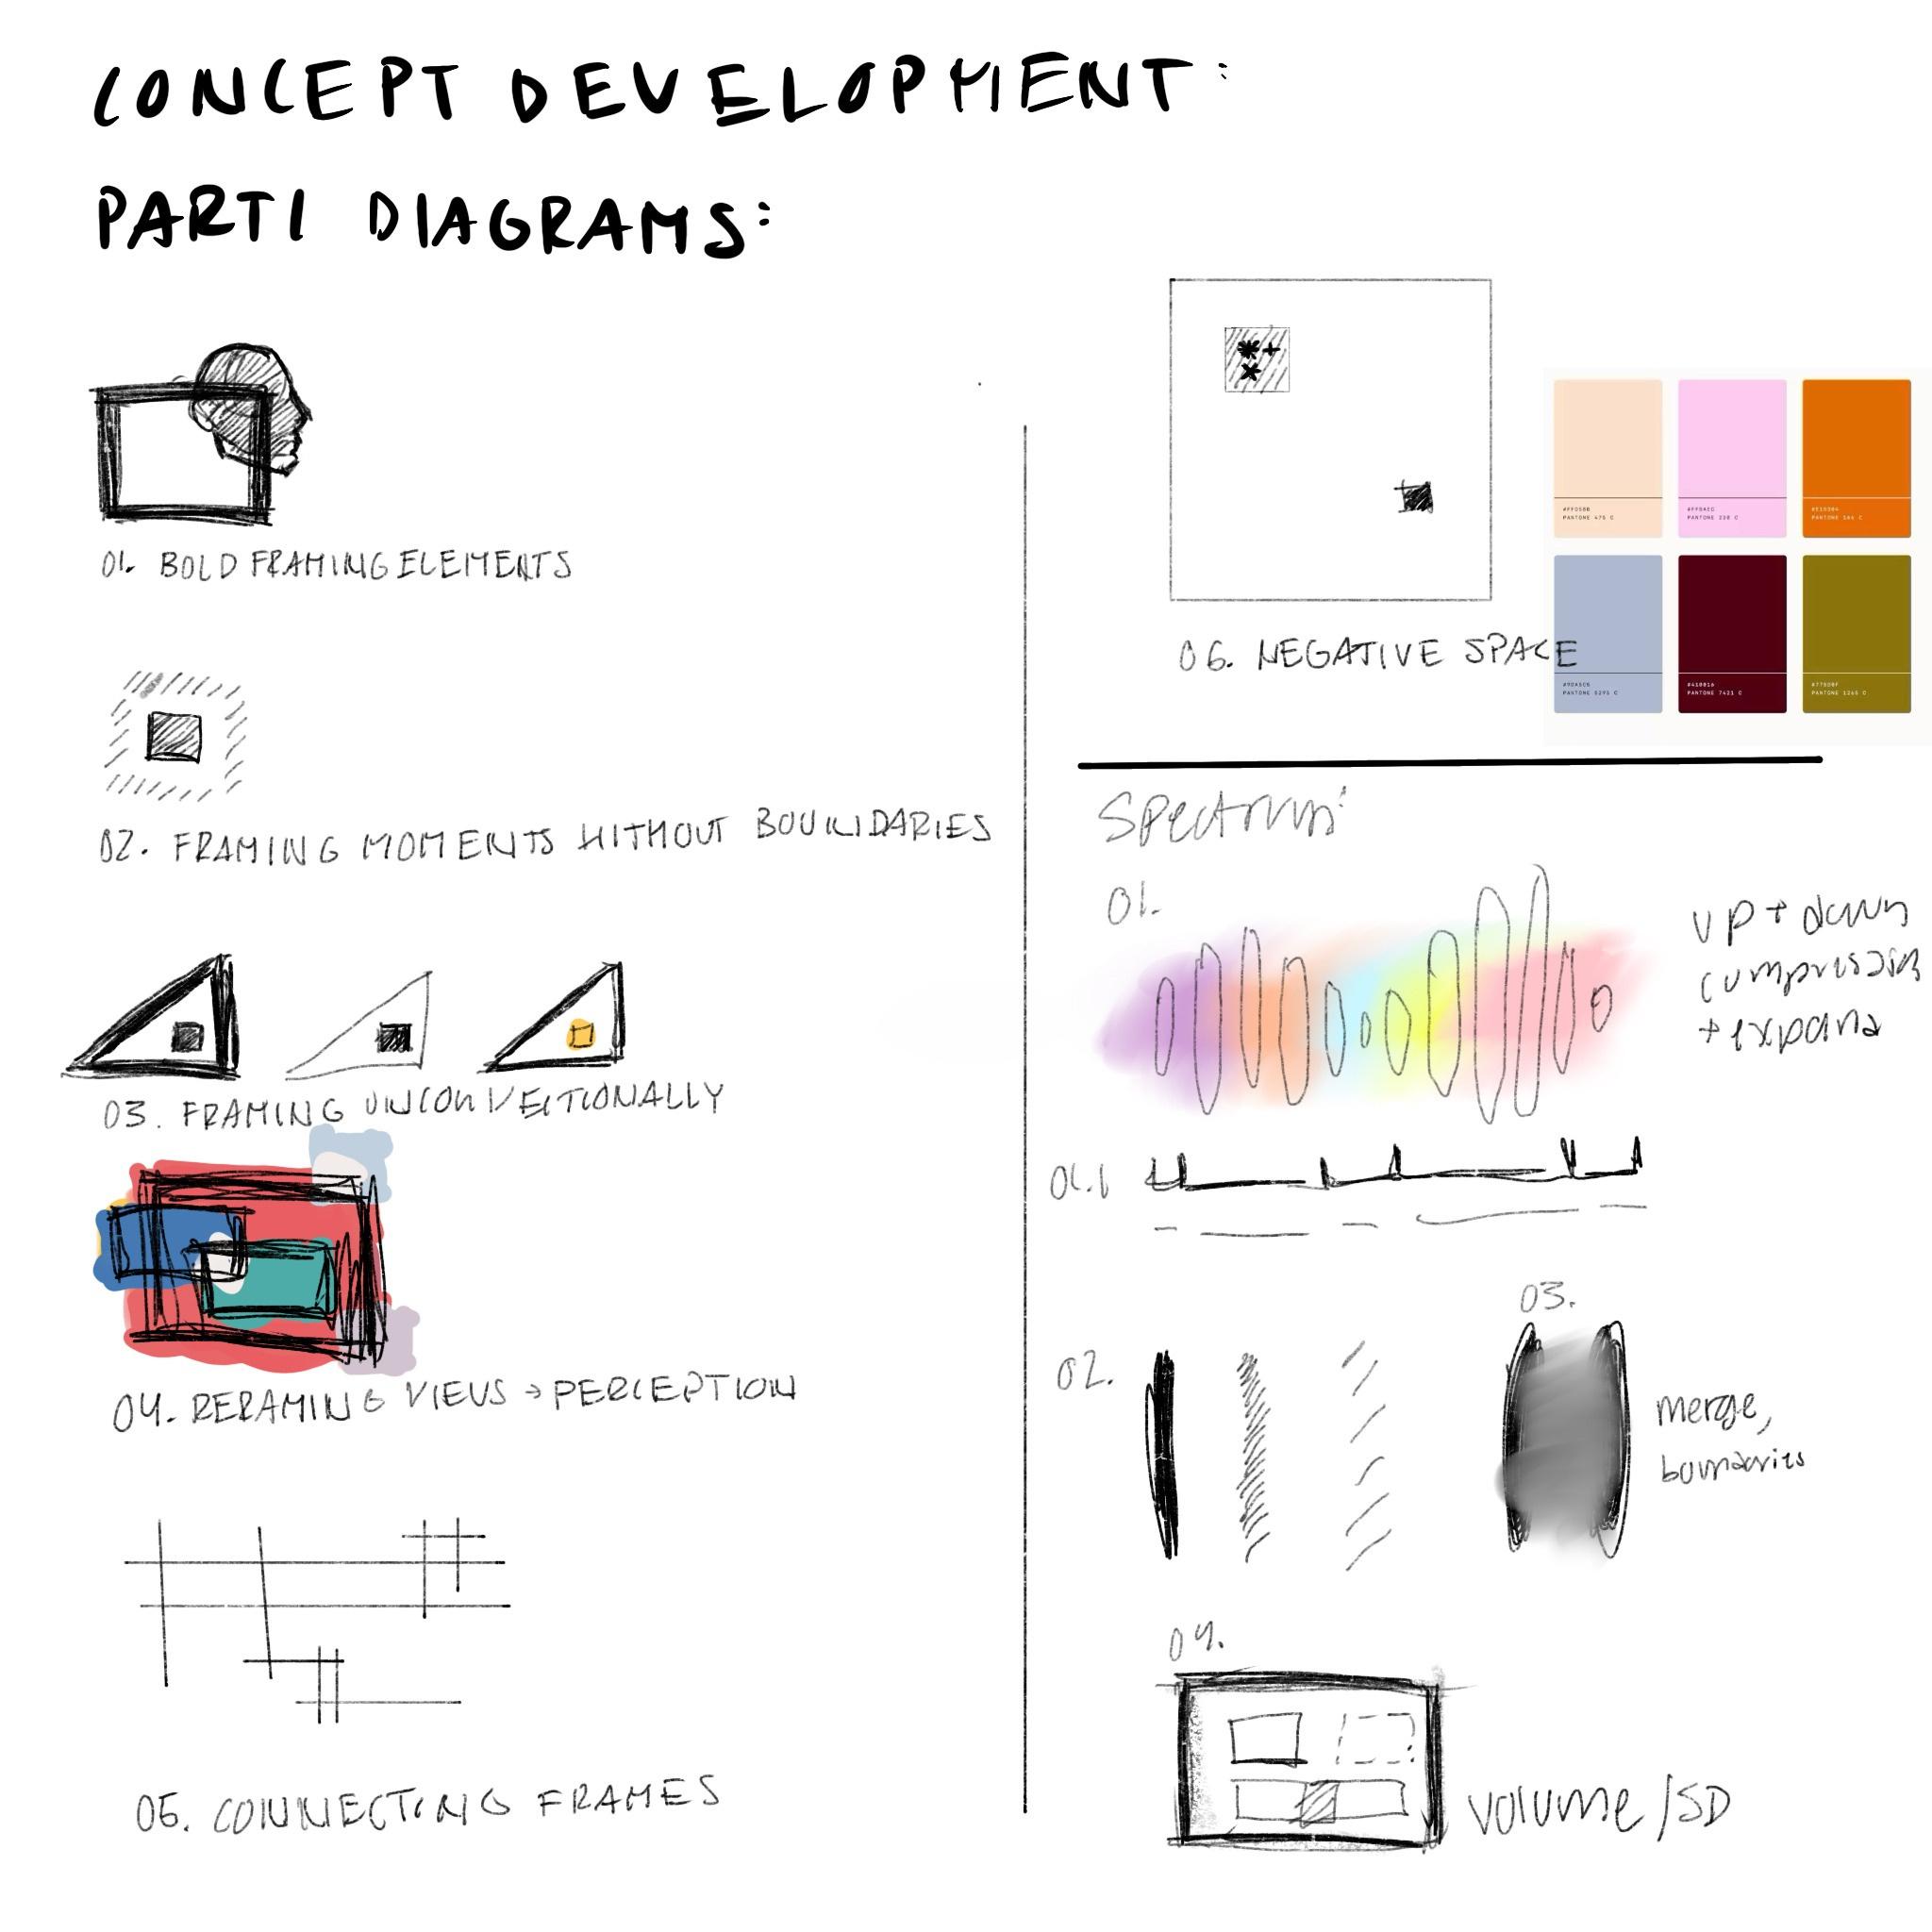 CONCEPT DEVELOPMENT:
PARTI DIAGRAMS:
01. BOLD FRAMING ELEMENTS
02. FRAMING MOMENTS WITHOUT BOUNDARIES
03. FRAMING UNCONVENTIONALLY
04. RERAMING VIEWS → PERCEPTION
05. CONNECTING FRAMES
06. NEGATIVE SPACE
PANTONE 475 C
PANTONE 7421 C
Spectrum:
01.
up + down
compression
+ expand
01.1
02.
03.
merge,
boundaries
04.
volume/SD